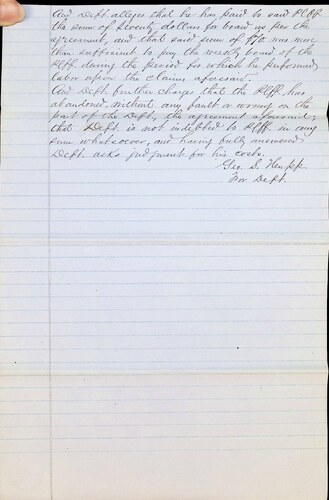 And Deft alleges that he has paid to said Plff
the sum of Seventy dollars for board as per the
agreement, and that said sum of $70 was more
than sufficient to pay the weekly board of the
Plff during the period for which he performed
labor upon the claims aforesaid.
And Deft further charges that the Plff has
abandoned without any fault or wrong on the
part of the Deft, the agreement aforesaid;
that Deft is not indebted to Plff in any
sum whatsoever, and having fully answered
Deft. asks judgment for his costs.
Geo. S.
For Deft.